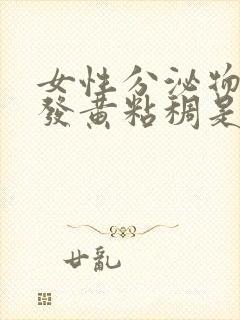 女性分泌物
發黃粘稠是
廿亂